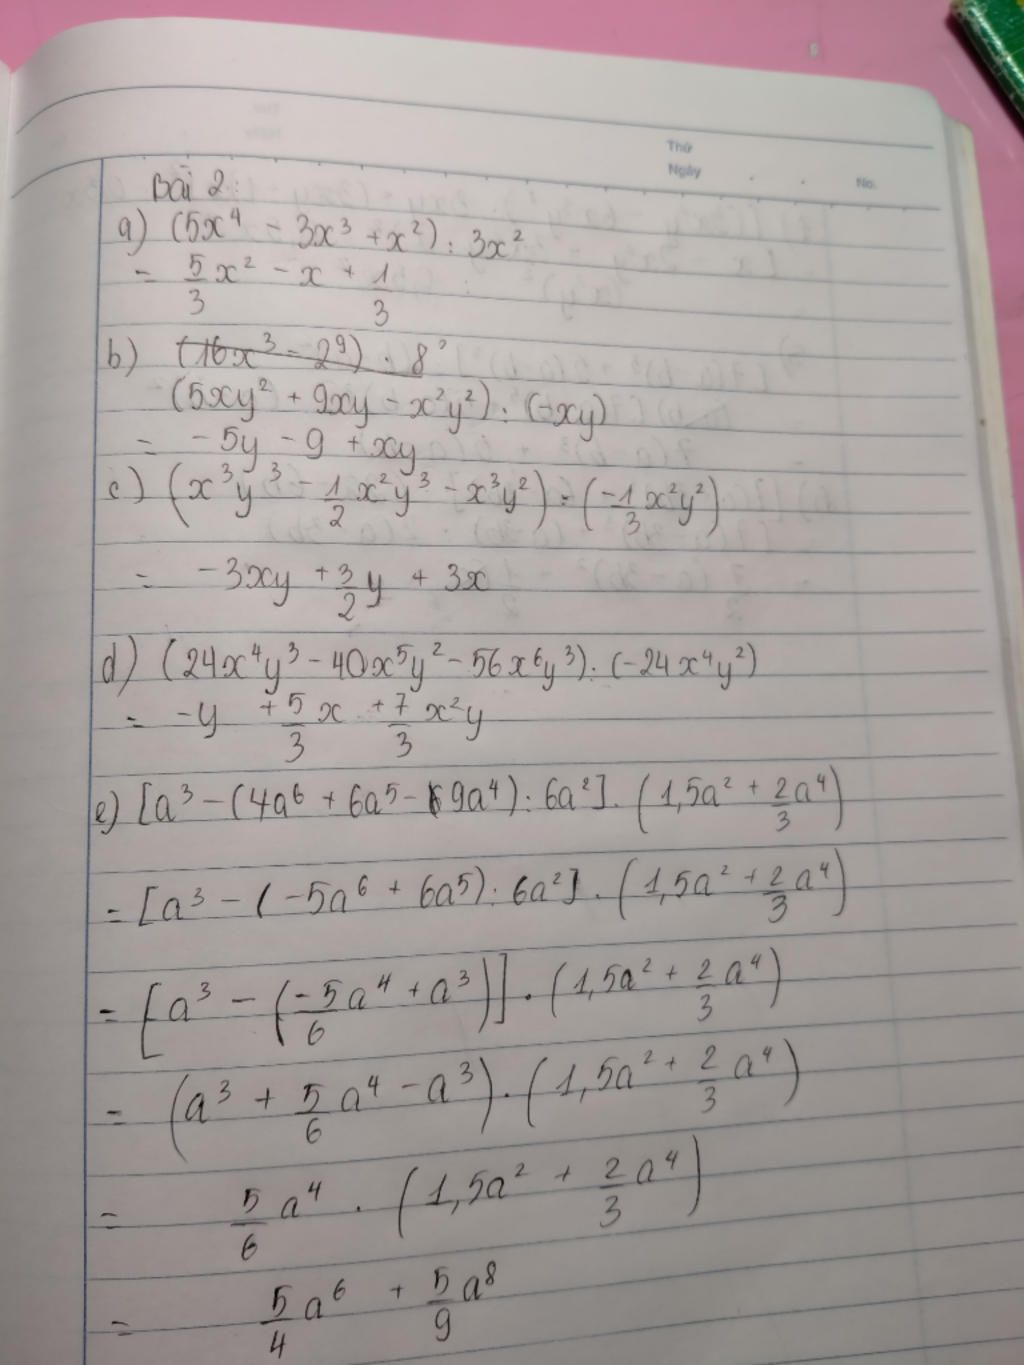 Thứ
Ngày
No.
Bài 2:
a) (5x⁴ - 3x³ + x²) : 3x²
= 5/3 x² - x + 1/3
b) (16x³ - 2⁹) : 8³
(5xy² + 9xy - x²y²) : (-xy)
= -5y - 9 + xy
c) (x³y³ - 1/2 x²y³ - x³y²) : (-1/3 x²y²)
= -3xy + 3/2 y + 3x
d) (24x⁴y³ - 40x⁵y² - 56x⁶y³) : (-24x⁴y²)
= -y + 5/3 x + 7/3 x²y
e) [a³ - (4a⁶ + 6a⁵ - 9a⁴) : 6a²] . (1,5a² + 2/3 a⁴)
= [a³ - (-5a⁶ + 6a⁵) : 6a²] . (1,5a² + 2/3 a⁴)
= [a³ - (-5/6 a⁴ + a³)] . (1,5a² + 2/3 a⁴)
= (a³ + 5/6 a⁴ - a³) . (1,5a² + 2/3 a⁴)
= 5/6 a⁴ . (1,5a² + 2/3 a⁴)
= 5/4 a⁶ + 5/9 a⁸